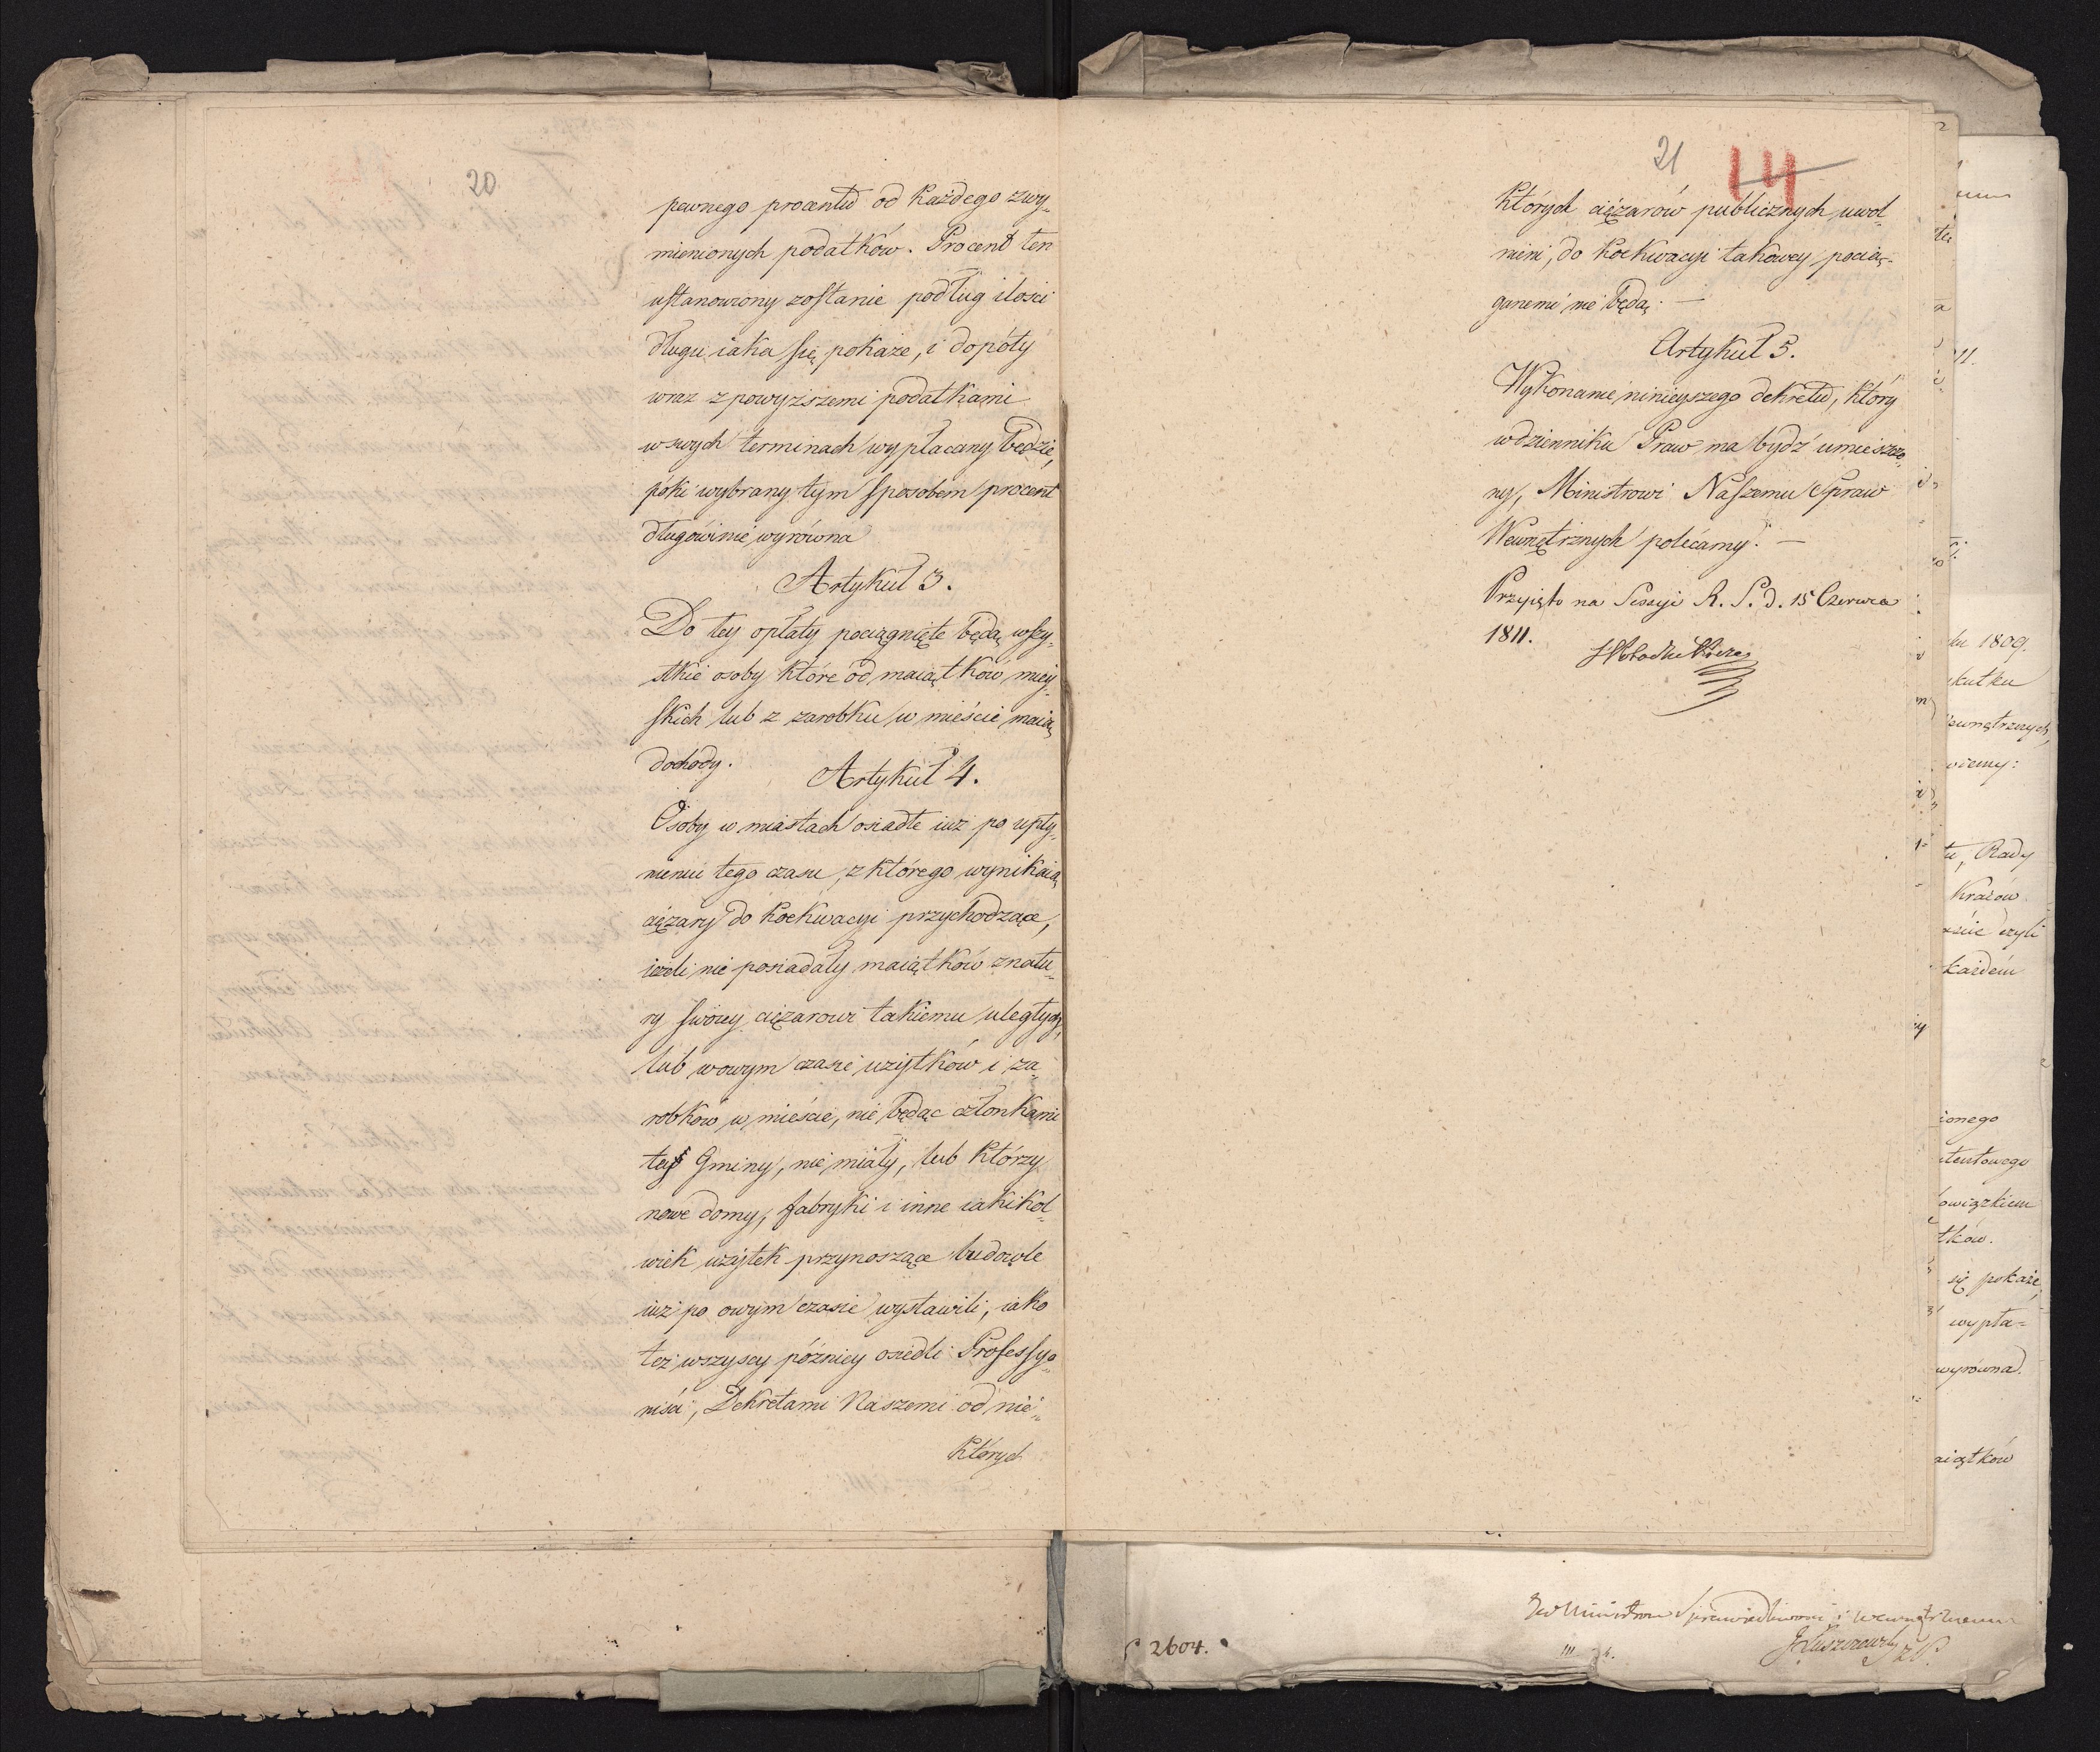 20
pewnego procentu od każdego zwy„
mienionych podatków. Procent ten
ustanowiony zostanie podług ilości
długu iaka się pokaże, i dopóty
wraz z powyższemi podatkami
w swych terminach wypłacany będzie,
póki wybrany tym sposobem procent
długówi nie wyrówna
Artykuł 3.
Do tey opłaty pociągnięte będą wszy„
stkie osoby które od maiątków miey„
skich lub z zarobku w mieście maią
dochody.
Artykuł 4.
Osoby w miastach osiadłe iuż po upły„
nieniu tego czasu, z którego wynikaią
ciężary do koekwacyi przychodzące,
ieżeli nie posiadały maiątków z natu„
ry swoiey ciężarowi takiemu uległych,
lub w owym czasie użytków i za„
robków w mieście, nie będąc członkami
tey Gminy, nie miały, lub którzy
nowe domy, fabryki i inne iakikol„
wiek użytek przynoszące budowle
iuż po owym czasie wystawili, iako
też wszyscy późniey osiedli Professyo„
niści, Dekretami Naszemi od nie„
których
21
14
których ciężarów publicznych uwol„
nieni, do koekwacyi takowey pocią„
ganemi nie będą. —
Artykuł 5.
Wykonanie ninieyszego dekretu, który
w dzienniku Praw ma bydź umieszczo„
ny, Ministrowi Naszemu Spraw
Wewnętrznych polecamy. —
Przyięto na Sessyi R. S. d. 15 Czerwca
1811.
11.
ku 1809.
skutku
wewnętrznych,
wiemy:
Rady
Kraiów
czyli
każdém
ionego
owiązkiem
tków.
się pokaże,
wypła=
wyrówna.
aiątków
2604.
Ministrom Sprawiedliwości i wewnętrznemu